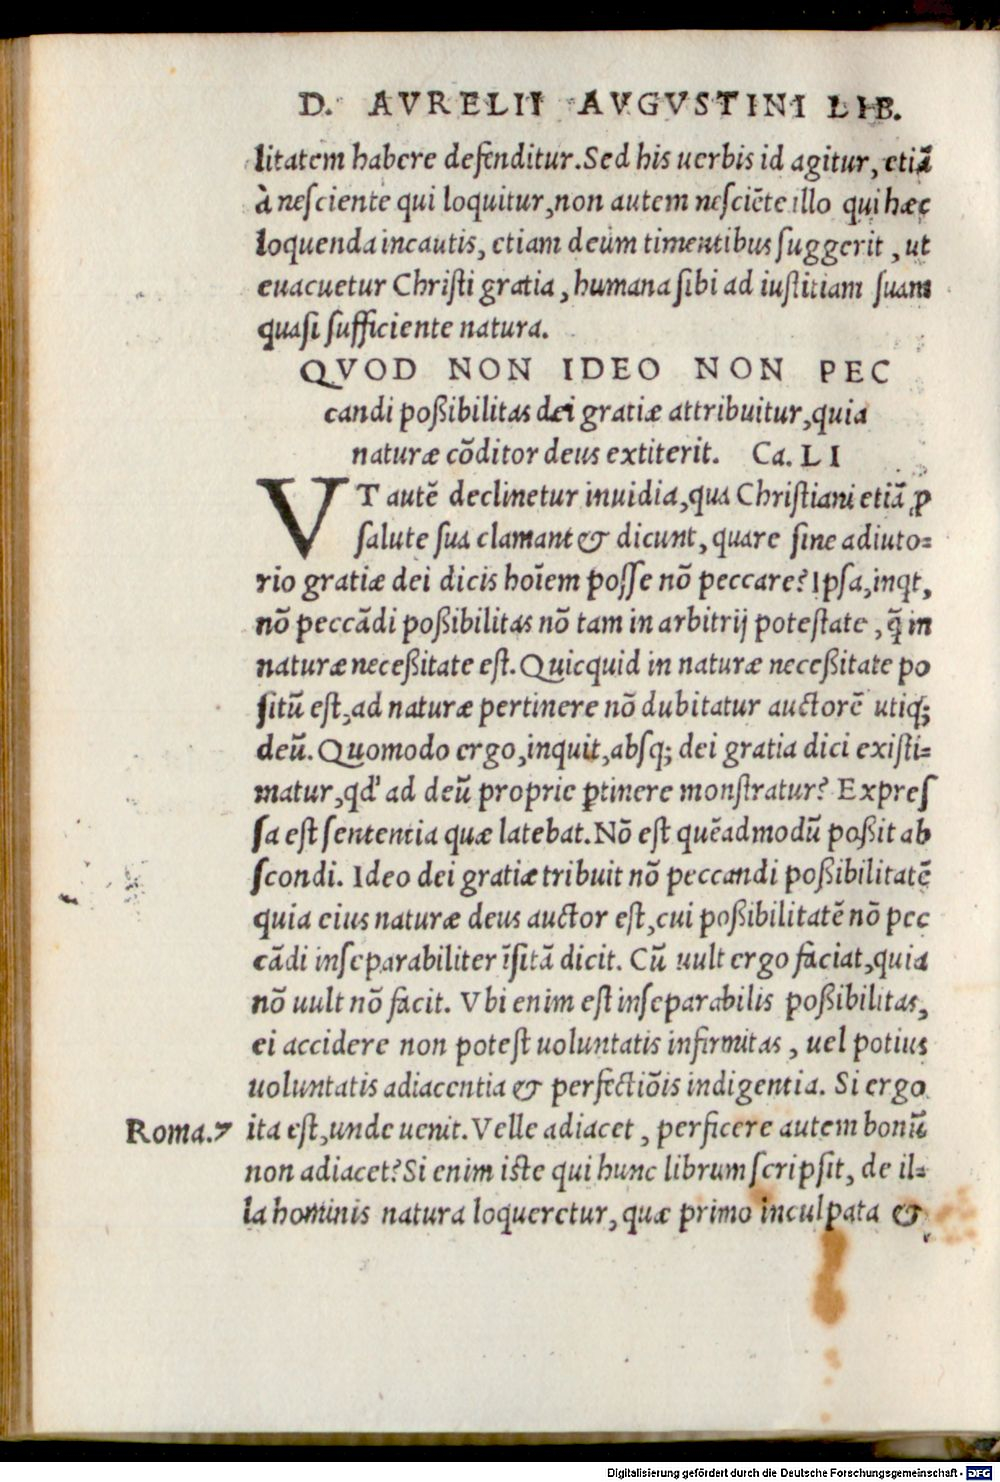 D. AVRELII AVGVSTINI LIB.
litatem habere defenditur. Sed his uerbis id agitur, etiā
à nesciente qui loquitur, non autem nesciēte illo qui hæc
loquenda incautis, etiam deum timentibus suggerit, ut
euacuetur Christi gratia, humana sibi ad iustitiam suam
quasi sufficiente natura.
QVOD NON IDEO NON PEC
candi poßibilitas dei gratiæ attribuitur, quia
naturæ cōditor deus extiterit. Ca. LI
VT autē declinetur inuidia, qua Christiani etiā ꝓ
salute sua clamant & dicunt, quare sine adiuto=
rio gratiæ dei dicis hoīem posse nō peccare? Ipsa, inqt,
nō peccādi poßibilitas nō tam in arbitrij potestate, q̄ in
naturæ neceßitate est. Quicquid in naturæ neceßitate po
sitū est, ad naturæ pertinere nō dubitatur auctorē utiq;
deū. Quomodo ergo, inquit, absq; dei gratia dici existi=
matur, qd' ad deū proprie ꝑtinere monstratur? Expres
sa est sententia quæ latebat. Nō est quēadmodū poßit ab
scondi. Ideo dei gratiæ tribuit nō peccandi poßibilitatē
quia eius naturæ deus auctor est, cui poßibilitatē nō pec
cādi inseparabiliter īsitā dicit. Cū uult ergo faciat, quia
nō uult nō facit. Vbi enim est inseparabilis poßibilitas,
ei accidere non potest uoluntatis infirmitas, uel potius
uoluntatis adiacentia & perfectiōis indigentia. Si ergo
Roma. 7 ita est, unde uenit. Velle adiacet, perficere autem bonū
non adiacet? Si enim iste qui hunc librum scripsit, de il=
la hominis natura loqueretur, quæ primo inculpata &
Digitalisierung gefördert durch die Deutsche Forschungsgemeinschaft - DFG